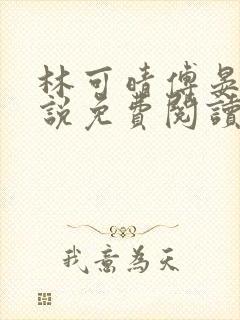 林可晴傅晏
說免費閱讀
我意為天